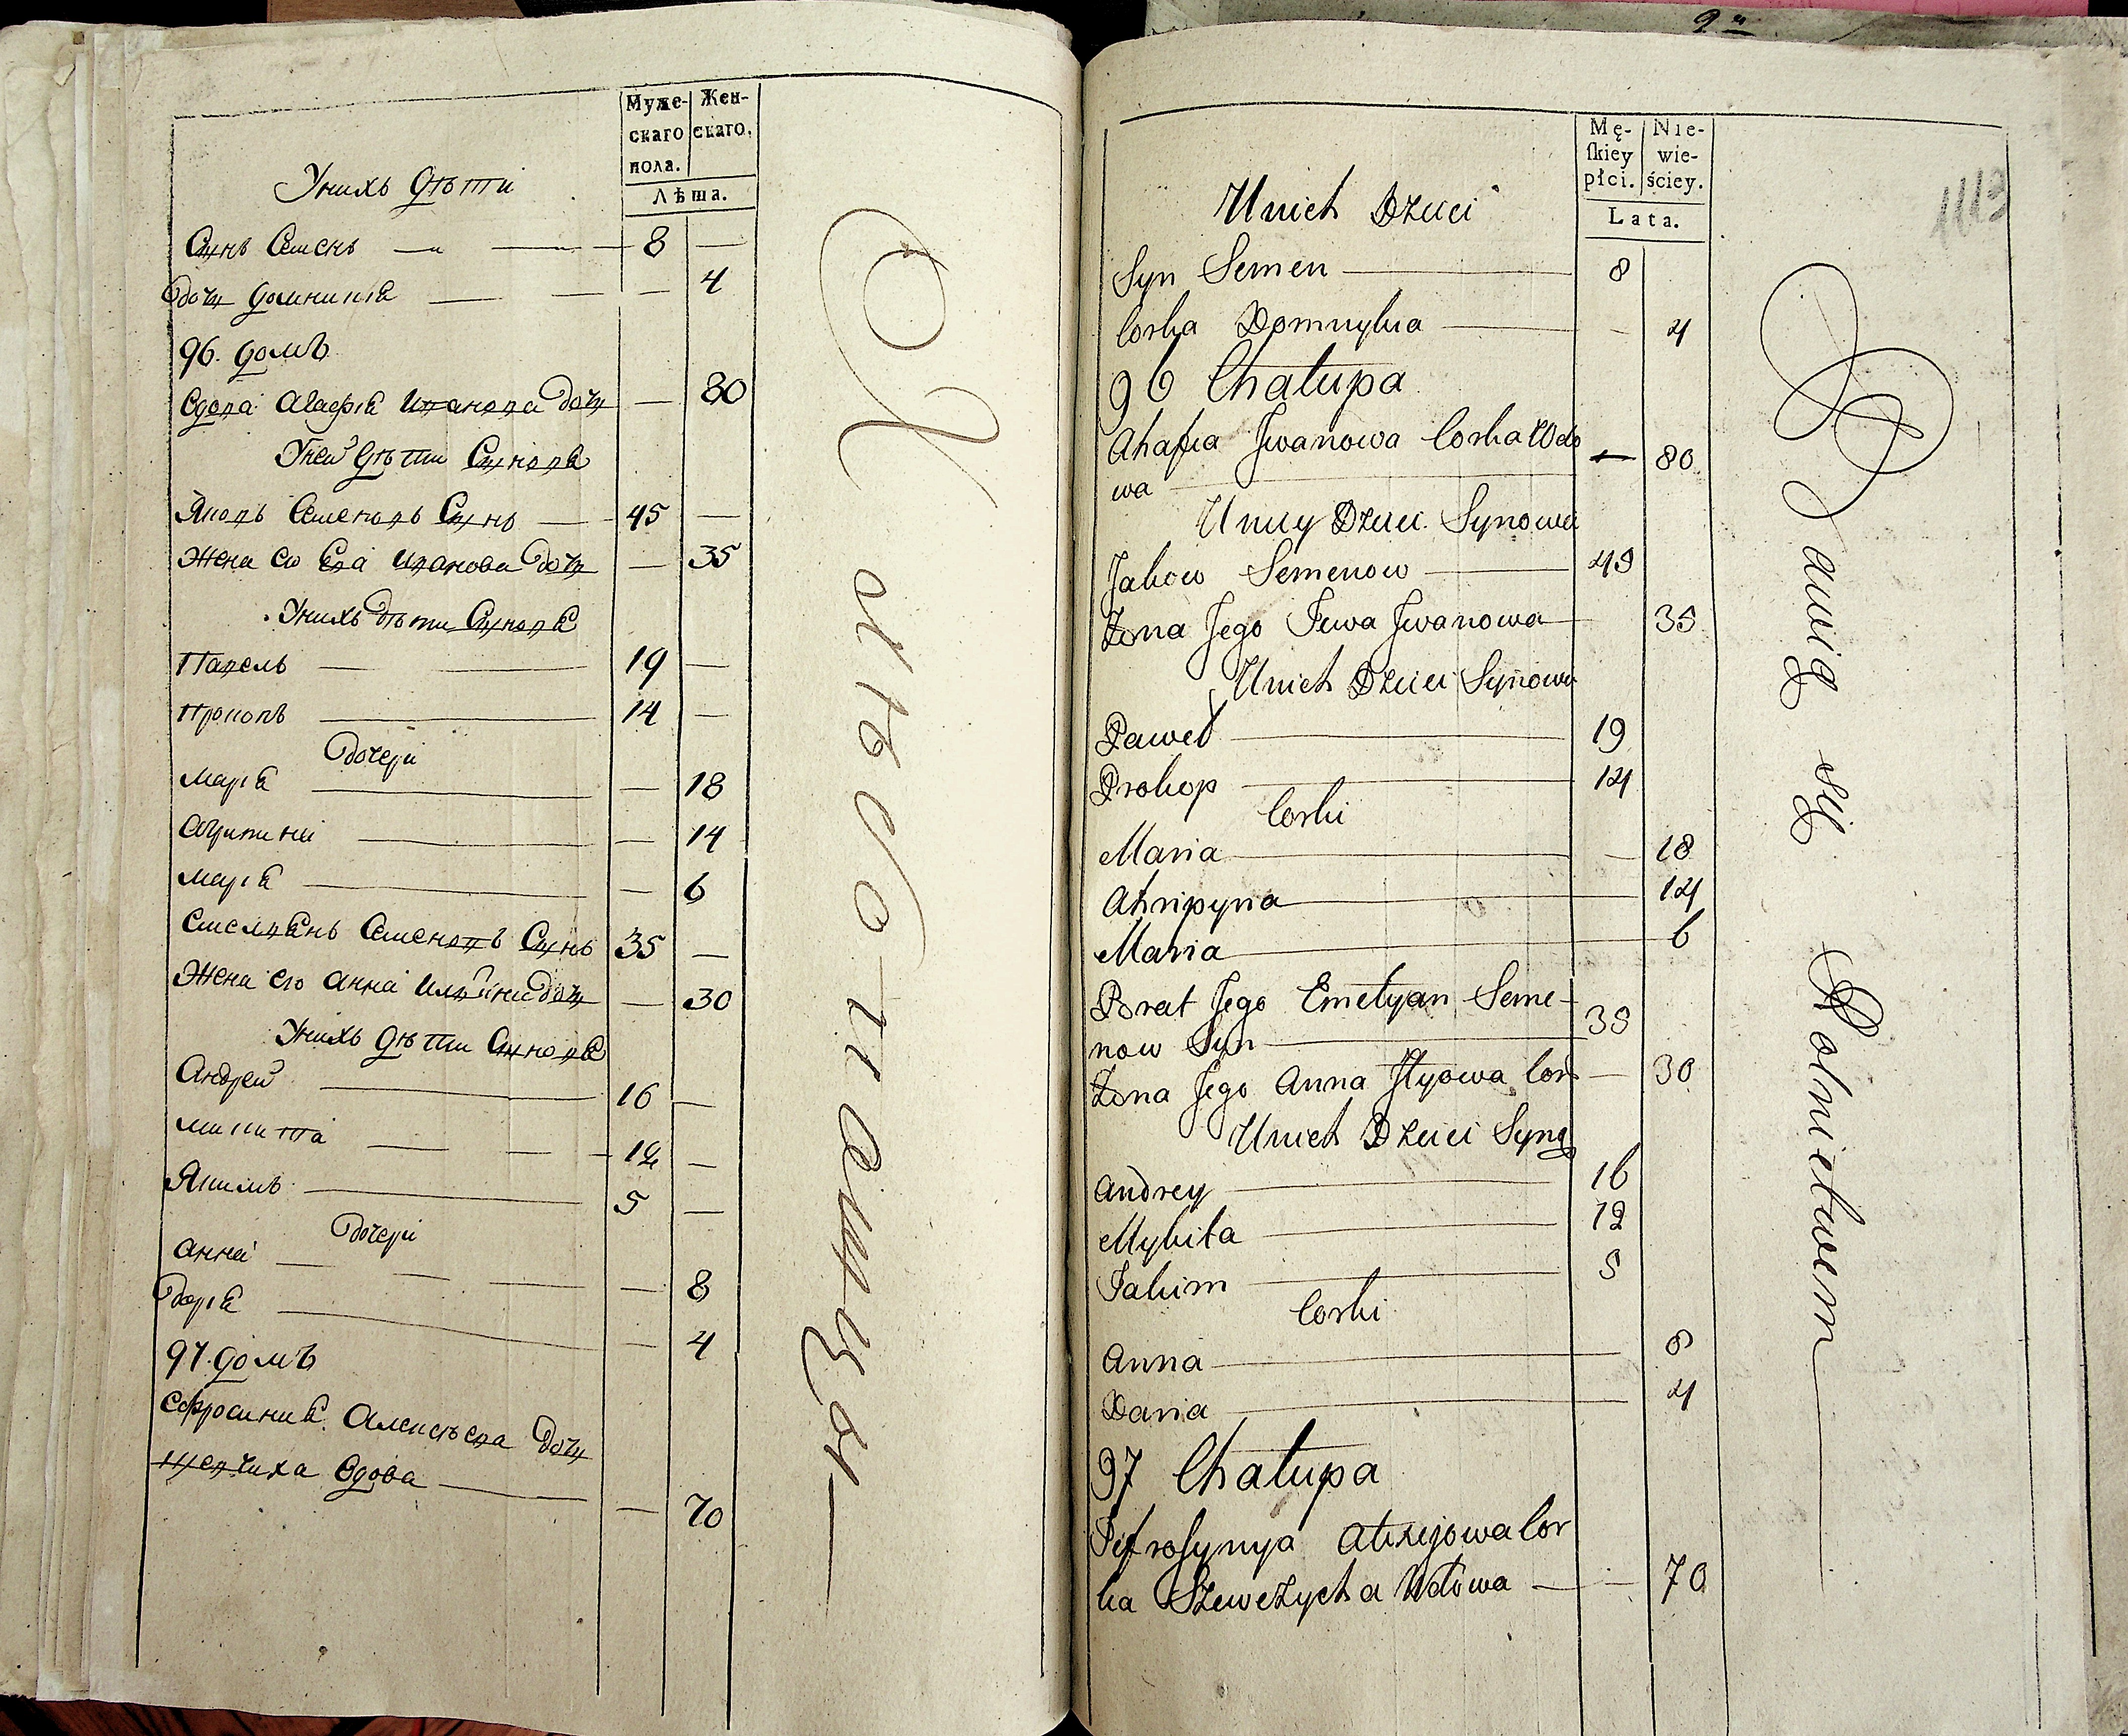 Муже-
скаго
пола.
Жен-
скаго.
Лѣта.
Унихъ Дѣти
Сынъ Семенъ — 8 —
дочь Домникіа — 4
96. домъ
Вдова Агафіа Иванова дочь — 80
Уней Дѣти Сыновѣ
Яковъ Семеновъ Сынъ — 45 —
Жена его Ева Иванова дочь — 35
Унихъ дѣти Сыновѣ
Павелъ — 19 —
Прокопъ — 14 —
дочери
Маріа — 18
Агрипина — 14
Маріа — 6
Емельянъ Семеновъ Сынъ 35 —
Жена его Анна дочь — 30
Унихъ Дѣти Сыновѣ
Андрей — 16 —
Микита — 12 —
Якимъ — 5 —
дочери
Анна — 8
Даріа — 4
97. домъ
Ефросиніа Алексѣева дочь
Шевчиха Вдова — 70
Мę-
skiey
płci.
Nie-
wie-
ściey.
Lata.
1113
Unich Dzieci
Syn Semen — 8
Corka Domnykia — 4
96 Chałupa
Ahafia Jwanowa Corka Wdo — 80
wa
Uniey Dzieci Synowie
Jakow Semenow — 45
Żona Jego Iewa Jwanowa — 35
Unich Dzieci Synowie
Paweł — 19
Prokop — 14
Corki
Maria — 18
Ahripyna — 14
Maria — 6
Brat Jego Emelyan Seme-
now Syn — 35
Żona Jego Anna Jlyowa Cor — 30
Unich Dzieci Syny
Andrey — 16
Mykita — 12
Iakim — 5
Corki
Anna — 8
Daria — 4
97 Chałupa
Iefrosynya Alexejowa Cor
ka Szewczycha Wdowa — 70
Bawią się Rolnictwem